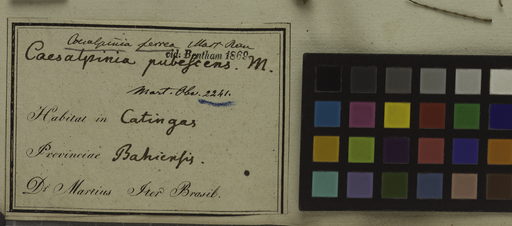 Caesalpinia ferrea Mart. Rev
det: Bentham 1869
Caesalpinia pubescens. M.
Mart. Obs. 2241.
Habitat in Catingas
Provinciae Bahiensis.
Dr Martius Iter Brasil.